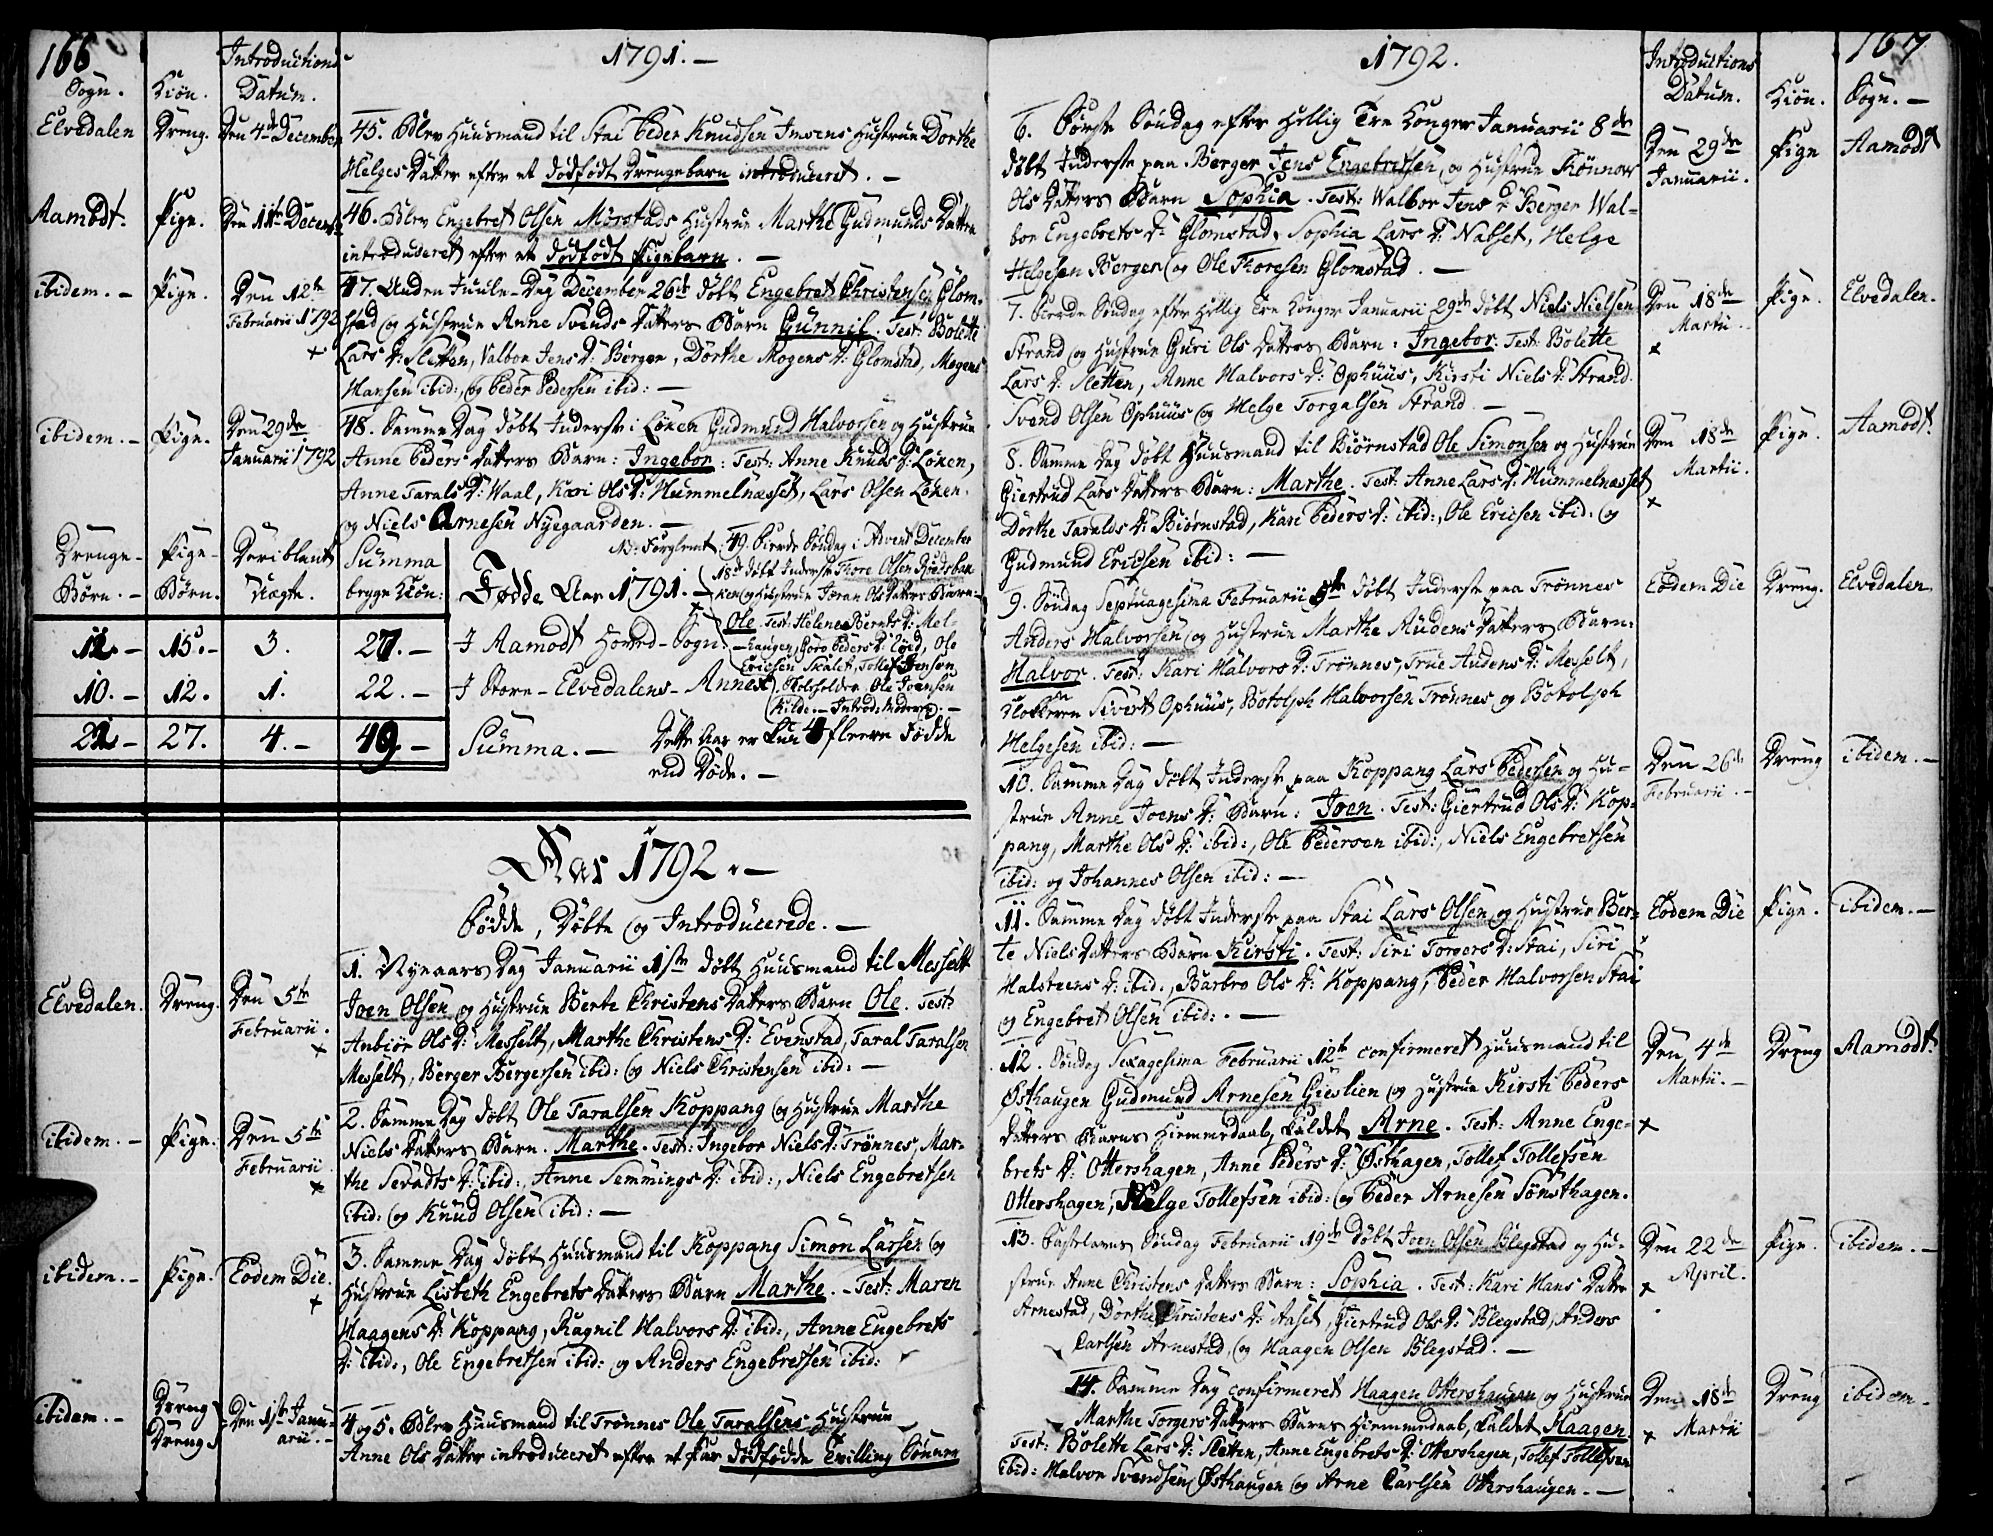 166
1791. —
Sogn. Kiön. Introductions Datum.
Elvedalen Dreng. Den 4de December
45. Blev Huusmand til Stai Peder Knudsen Imoens Hustrue Dorthe
Helges Datter efter et dödfödt Drengebarn introduceret. —
Aamodt. Pige. Den 11te Decemb.
46. Blev Engebret Olsen Mörstads Hustrue Marthe Gudmunds Datter
introduceret efter et dödfödt Pigebarn. —
ibidem. — Pige. Den 12te Februarii 1792 +
47. Anden Juule-Dag December 26de döbt Engebret Christensen Glom-
stad og Hustrue Anne Svends Datters Barn Gunnil. Test: Bolette
Lars D: Sletten, Valbor Jens D: Bergen, Dorthe Mogens D: Glomstad, Mogens
Hansen ibid:, og Peder Pedersen ibid: —
ibidem. — Pige. Den 29de Januarii 1792
48. Samme Dag döbt Inderste i Löken Gudmund Halvorsen og Hustrue
Anne Peders Datters Barn: Ingebor: Test: Anne Knuds D: Löken,
Anne Tarals D: Waal, Kari Ols D: Hummelnæsset, Lars Olsen Löken.
og Niels Arnesen Nyegaarden. —
NB: Forglemt: 49. Fierde Söndag i Advent December
18de döbt Inderste Thore Olsen Rudsbak-
ken og Hustrue Joran Ols Datters Barn
Ole. Test: Helene Bernts D: Mel-
haugen, Goro Peders D: Löed, Ole
Ericsen Skulet, Tollef Jensen
Skoleholder, Ole Joensen
Kilde. — Introd: Moderen. —
Drenge-Börn. — Pige-Börn. Deriblant Uægte. Summa begge Kiön:
Födde Aar 1791. —
12. — 15. — 3. 27. — I Aamodt Hoved-Sogn.
10. — 12. 1. 22. — I Store-Elvedalens-Annex
22 — 27. 4. — 49. — Summa. —
Dette Aar er kun 4 fleere Födde
end Döde. —
Aar 1792. —
Födde, Döbte og Introducerede. —
Elvedalen. Dreng. Den 5te Februarii. +
1. Nyeaars Dag Januarii 1ste döbt Huusmand til Messelt
Joen Olsen og Hustrue Berte Christens Datters Barn Ole. Test:
Anbiör Ols D: Messelt, Marthe Christens D: Evenstad, Taral Taralsen
Messelt, Berger Bergersen ibid: og Niels Christensen ibid: —
ibidem. — Pige. Den 5te Februarii +
2. Samme Dag döbt Ole Taralsen Koppang og Hustrue Marthe
Niels Datters Barn. Marthe. Test: Ingebor Niels D: Trönnes, Mar-
the Sevadts D: ibid:, Anne Semmings D: ibid:, Niels Engebretsen
ibid: og Knud Olsen ibid: —
ibidem. — Pige. Eodem Die. +
3. Samme Dag döbt Huusmand til Koppang Simon Larsen og
Hustrue Lisbeth Engebrets Datters Barn Marthe. — Test: Maren
Haagens D: Koppang, Ragnil Halvors D: ibid:, Anne Engebrets
D: ibid:, Ole Engebretsen ibid: og Anders Engebretsen ibid:
ibidem. — Dreng Dreng Den 1ste Januarii. —
4 og 5. Blev Huusmand til Trönnes Ole Taralsens Hustrue
Anne Ols Datter introduceret efter et Par dödfödde Tvilling Sönner
167
1792.
Introductions Datum. Kiön. Sogn. —
6. Förste Söndag efter Hellig Tre Konger Januarii 8de
döbt Inderste paa Berger Jens Engebretsen og Hustrue Kiönnov
Ols Datters Barn Sophia. Test: Walbor Jens D: Berger Wal-
bor Engebrets D: Glomstad, Sophia Lars D: Nabset, Helge
Helgesen Bergen og Ole Thoresen Glomstad. —
Den 29de Januarii. Pige Aamodt
7. Fierde Söndag efter Hellig Tre Konger Januarii 29de döbt Niels Nielsen
Strand og Hustrue Guri Ols Datters Barn: Ingebor: Test: Bolette
Lars D: Sletten, Anne Halvors D: Ophuus, Kirsti Niels D: Strand.
Svend Olsen Ophuus og Helge Torgalsen Strand. —
Den 18de Martii. + Pige. Elvedalen.
8. Samme Dag döbt Huusmand til Biörnstad Ole Simonsen og Hustrue
Giertrud Lars Datters Barn: Marthe. Test: Anne Lars D: Hummelnæsset
Dorthe Taralds D: Biörnstad, Kari Peders D: ibid:, Ole Ericsen ibid: og
Gudmund Ericsen ibid: —
Den 18de Martii. + Pige. Aamodt.
9. Söndag Septuagesima Februarii 5te döbt Inderste paa Trönnes
Anders Halvorsen og Hustrue Marthe Audens Datters Barn:
Halvor. Test: Kari Halvors D: Trönnes, True Audens D: Messelt,
Klokkeren Sivert Ophuus, Botolph Halvorsen Trönnes og Botolph
Helgesen ibid: —
Eodem Die Dreng. Elvedalen
10. Samme Dag döbt Inderste paa Koppang Lars Pedersen og Hu-
strue Anne Joens D: Barn: Joen. Test: Giertrud Ols D: Kop-
pang, Marthe Ols D: ibid:, Ole Pedersen ibid:, Niels Engebretsen
ibid: og Johannes Olsen ibid: —
Den 26de Februarii. — Dreng ibidem. —
11. Samme Dag döbt Inderste paa Stai Lars Olsen og Hustrue Ber-
te Niels Datters Barn Kirsti. Test: Siri Torgers D: Stai, Siri
Halsteens D: ibid:, Barbro Ols D: Koppang, Peder Halvorsen Stai
og Engebret Olsen ibid:. —
Eodem Die Pige. ibidem. —
12. Söndag Sexagesima Februarii 12te confirmeret Huusmand til
Östhaugen Gudmund Arnesen Gieslien og Hustrue Kirsti Peders
Datters Barns Hiemmedaab, kaldet Arne. Test: Anne Enge-
brets D: Ottershagen, Anne Peders D: Östhagen, Tollef Tollefsen
Ottershagen, Helge Tollefsen ibid: og Peder Arnesen Sönsthagen.
Den 4de Martii. — + Dreng Aamodt.
13. Fastelavns Söndag Februarii 19de döbt Joen Olsen Blegstad og Hu-
strue Anne Christens Datters Barn: Sophia. Test: Kari Hans Datter
Arnestad, Dorthe Christens D: Aaset, Giertrud Ols D: Blegstad, Anders
Carlsen Arnestad, og Haagen Olsen Blegstad. —
Den 22de April. + Pige. ibidem. —
14. Samme Dag confirmeret Haagen Ottershaugen og Hustrue
Marthe Torgers Datters Barns Hiemmedaab, kaldet Haagen.
Test: Bolette Lars D: Sletten, Anne Engebrets D: Ottershagen, Tollef Tollefsen
ibid: Halvor Svendsen Östhaugen og Arne Carlsen Ottershaugen. —
Den 18de Martii + Dreng ibidem.